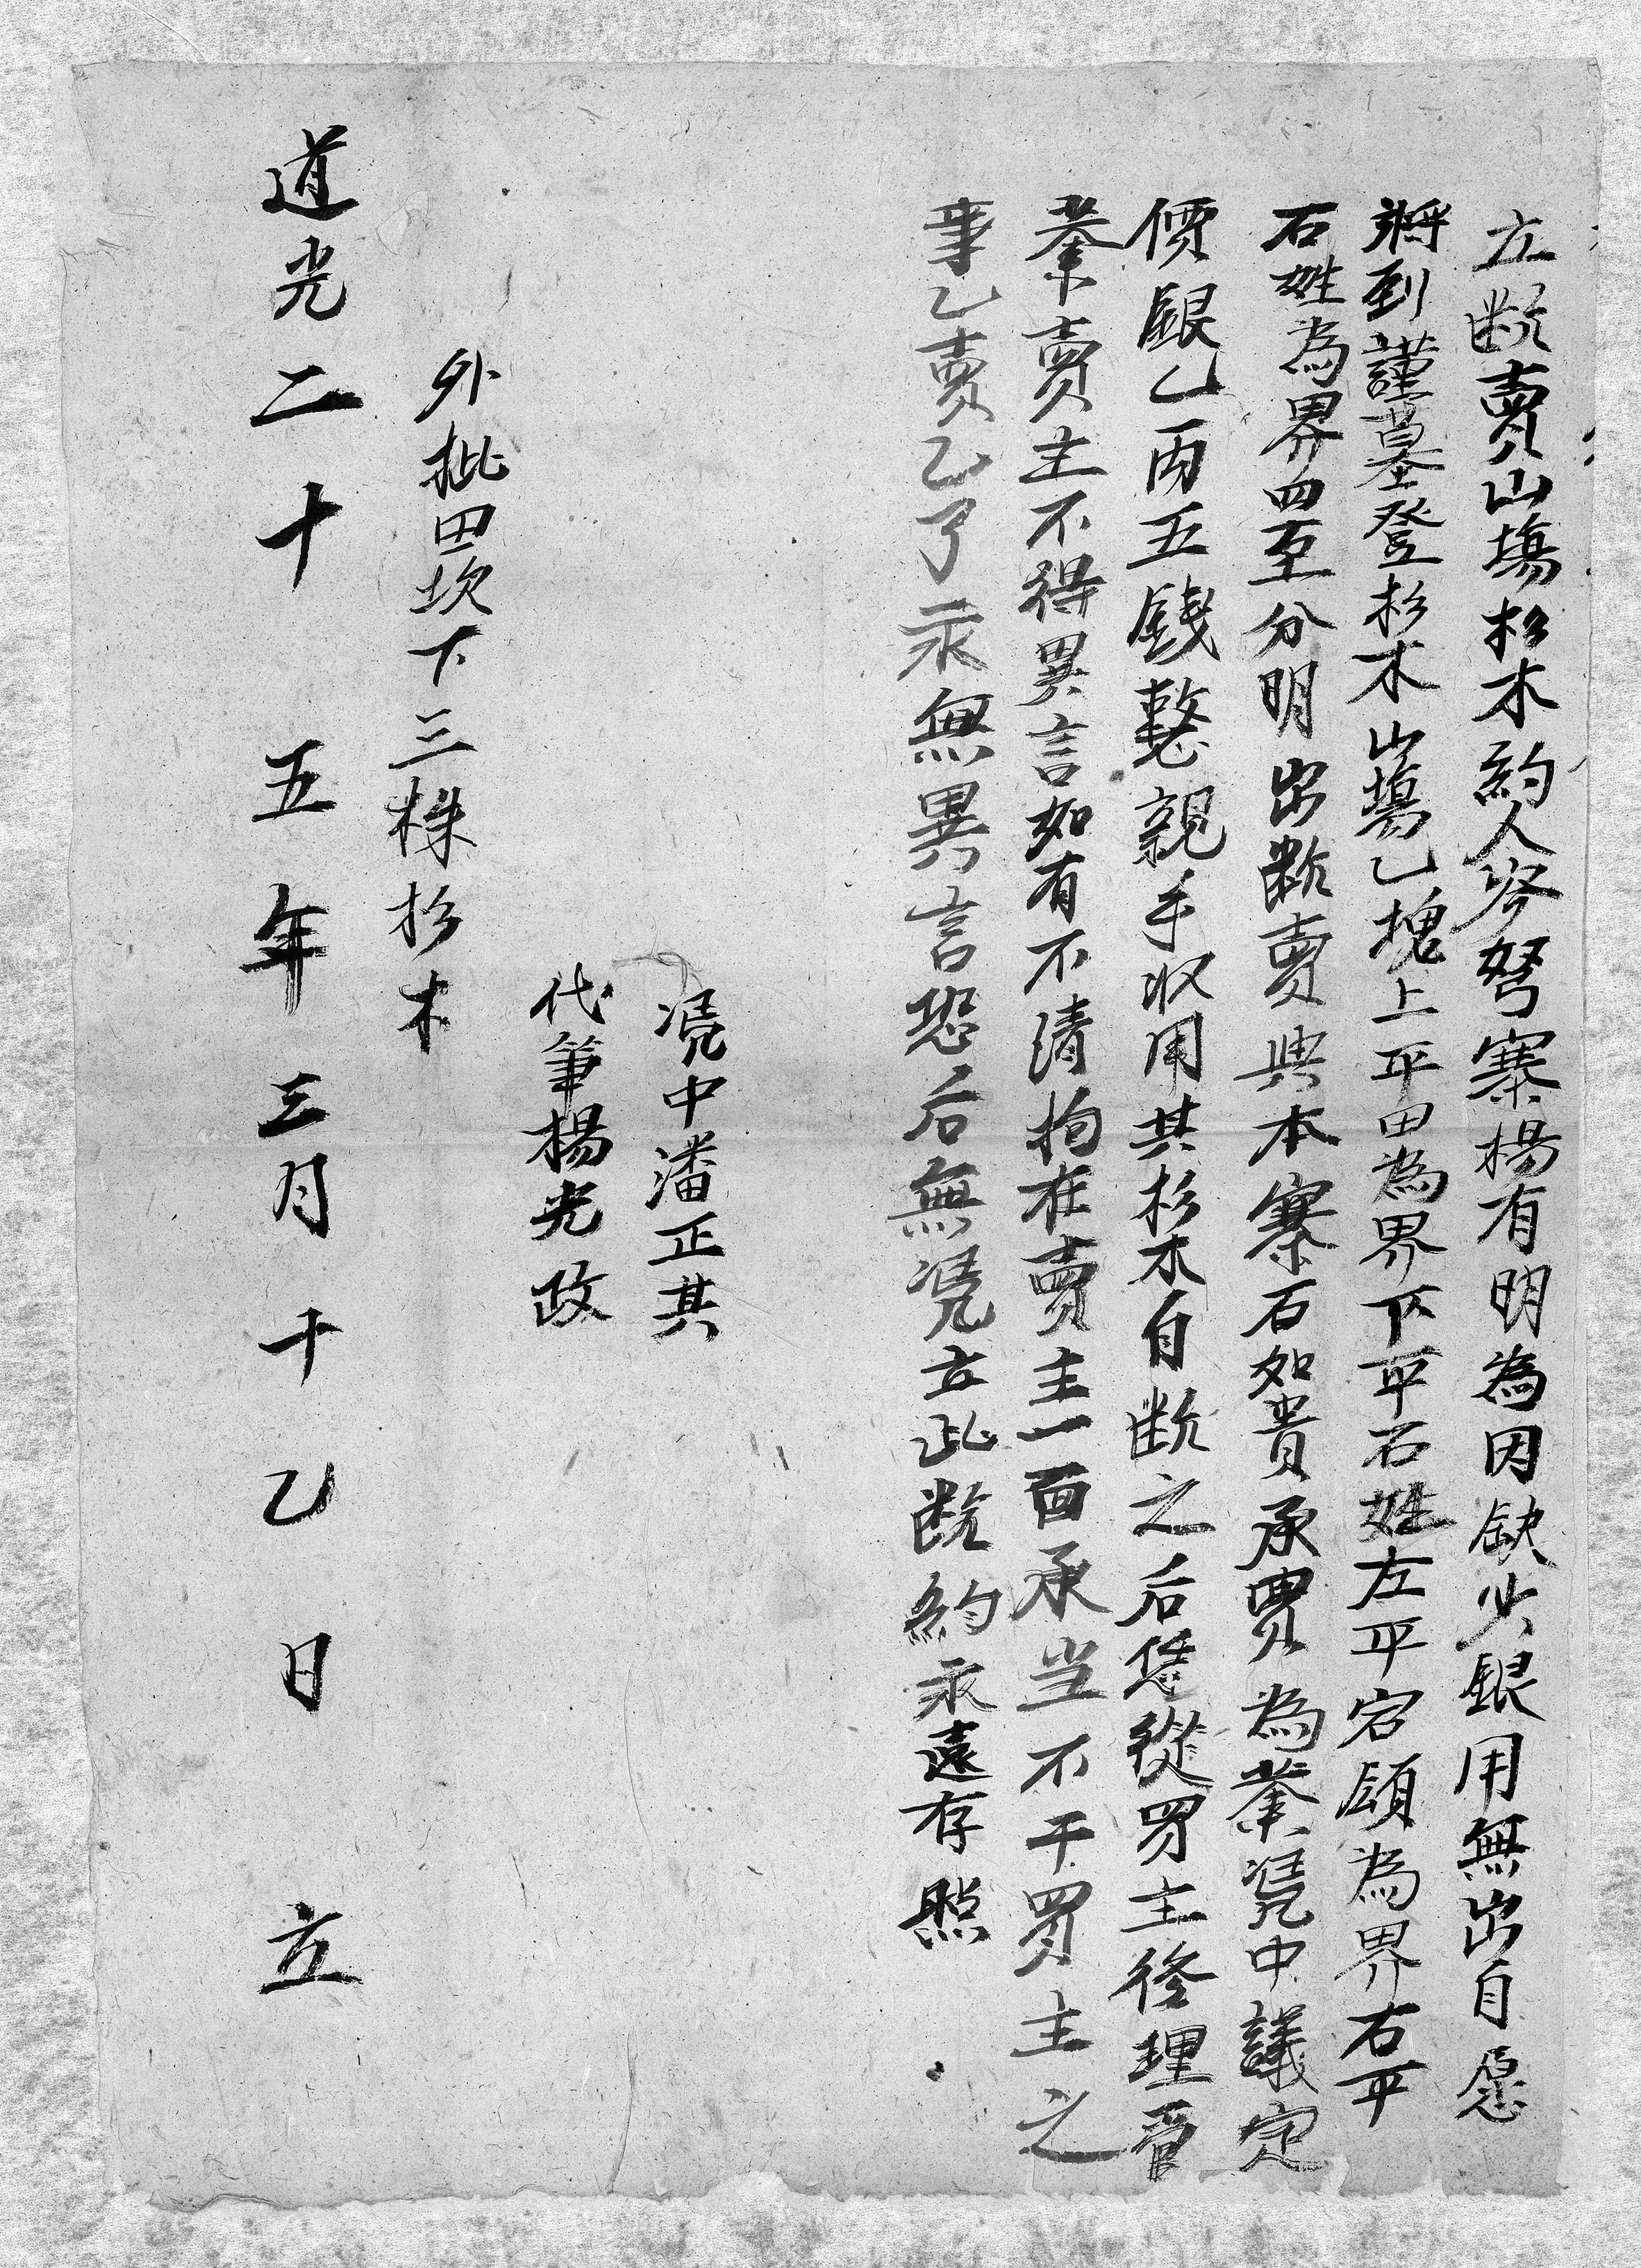 立断賣山塲杉木約人岑弩寨楊有明為因缺少銀用無出自愿
將到謹墓登杉木山塲乙塊上平田為界下平石姓左平宕頭為界右平
石姓為界四至分明出断賣與本寨石如貴承買為業凴中議定
價銀乙両五錢整親手收用其杉木自断之后恁從買主修理管
業賣主不得異言如有不清拘在賣主一面承当不干買主之
事乙賣乙了永無異言恐后無凴立此断約永遠存照
凴中潘正其
代筆楊光政
外批田坎下三株杉木
道光二十五年三月十乙日立